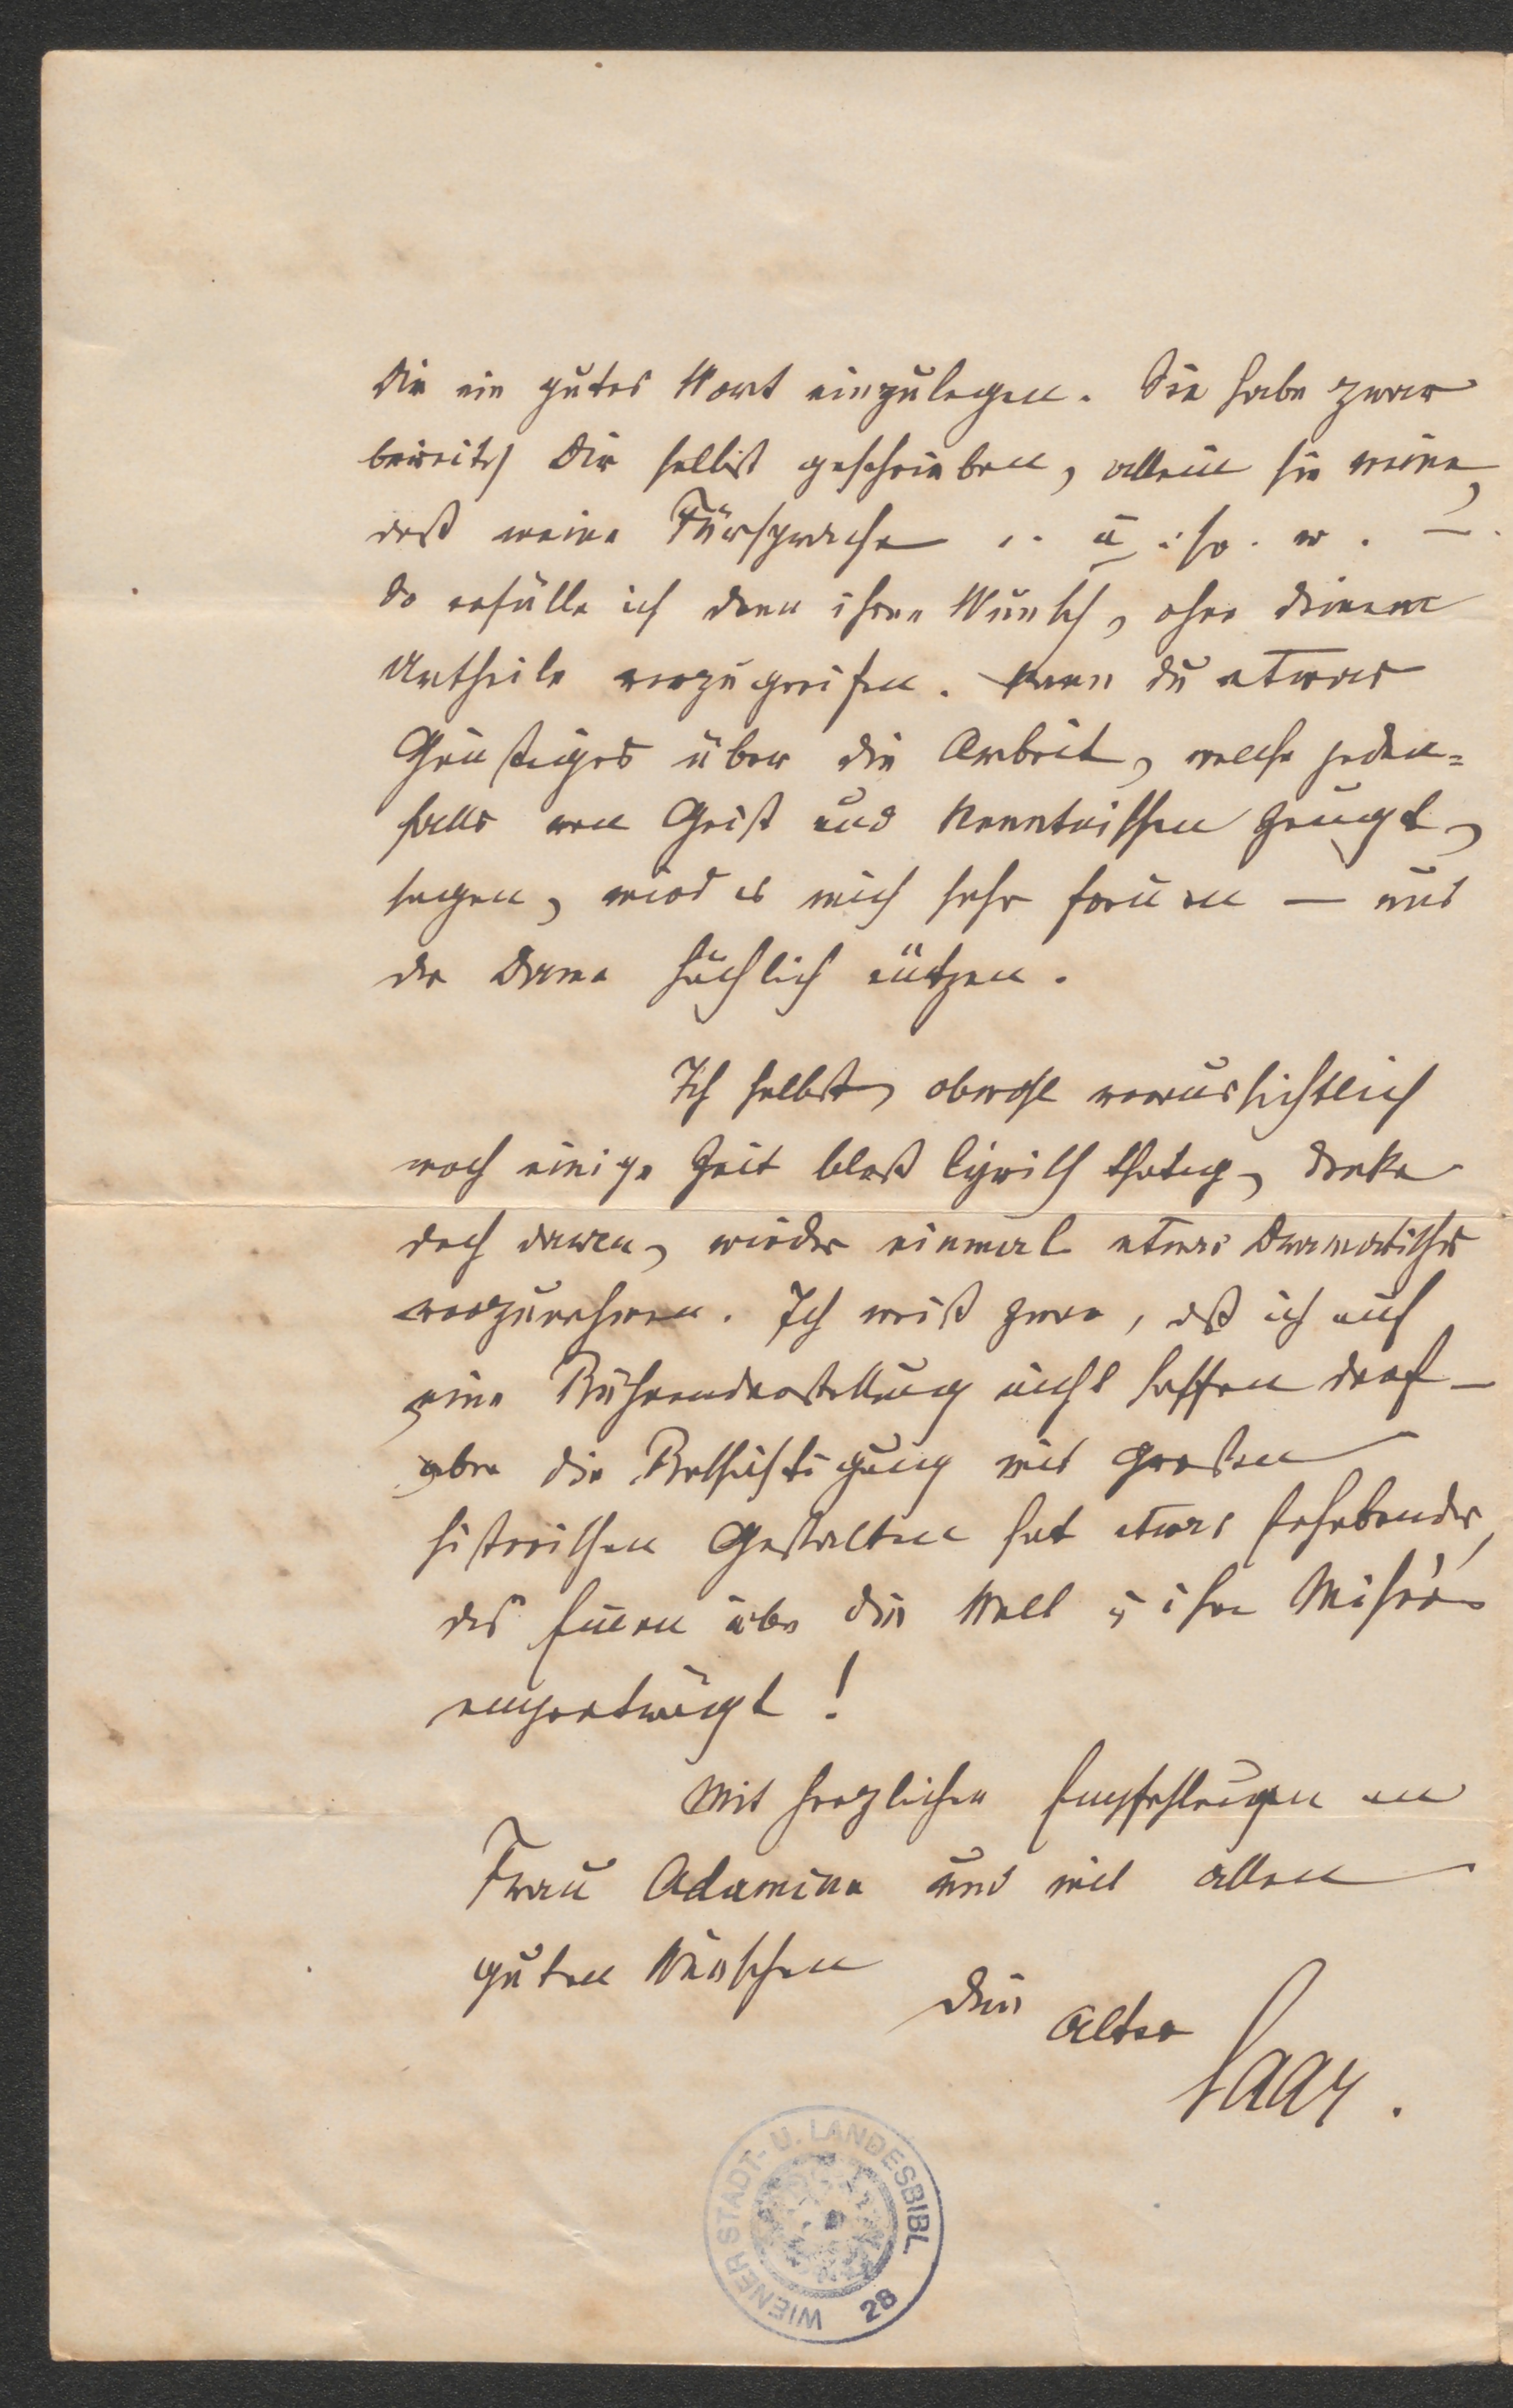 Dir ein gutes Wort einzulegen. Sie habe zwar
bereits Dir selbst geschrieben, allein sie meine,
daß meine Fürsprache .. u. so. w. —
So erfülle ich denn ihren Wunsch, ohne Deinem
Urtheile vorzugreifen. Kann Du etwas
Günstiges über die Arbeit, welche jeden=
falls von Geist und Kenntnissen zeugt,
sagen, wird es mich sehr freuen — und
der Dame sächlich nützen.
Ich selbst, obwohl voraussichtlich
noch einige Zeit bloß lyrisch thätig, denke
doch daran, wieder einmal etwas Dramatisches
vorzunehmen. Ich weiß zwar, daß ich auf
eine Bühnendarstellung nicht hoffen darf —
aber die Beschäftigung mit großen
historischen Gestalten hat etwas Erhebendes,
das Einen über die Welt u ihre Misère
emporträgt!
Mit herzlichen Empfehlungen an
Frau Adamina und mit allen
guten Wünschen
Dein alter
Saar.
WIENER STADT- U. LANDESBIBL.
28